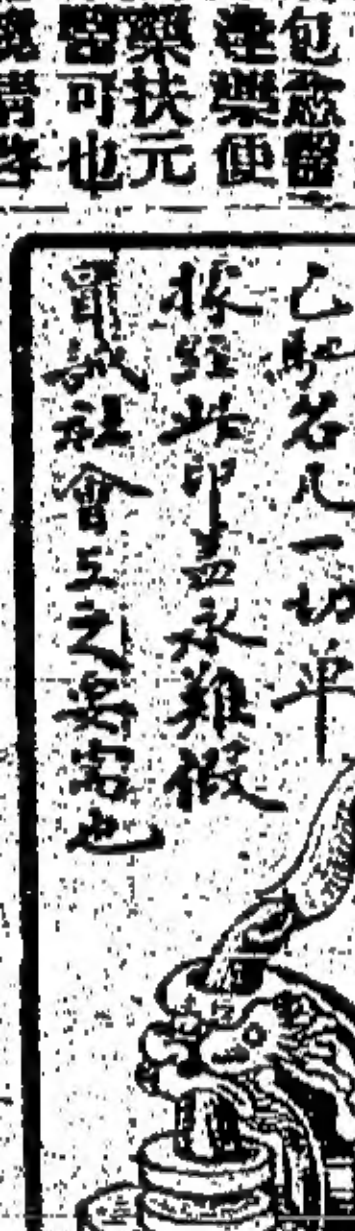 包愈醫
達藥便
藥扶元
醫可也
已馳名凡一切單
據經此印盖永難假
冒誠社會上之要害也